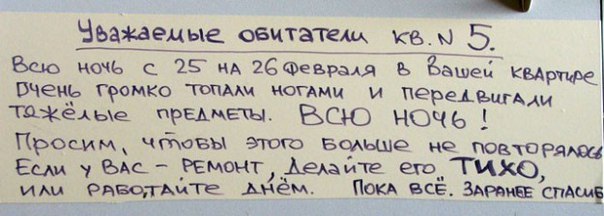 Уважаемые обитатели кв. N 5.
Всю ночь с 25 на 26 февраля в Вашей квартире
очень громко топали ногами и передвигали
тяжёлые предметы. ВСЮ НОЧЬ!
Просим, чтобы этого больше не повторялось
Если у ВАС - РЕМОНТ, делайте его ТИХО,
или работайте днём. Пока всё. Заранее спасиб